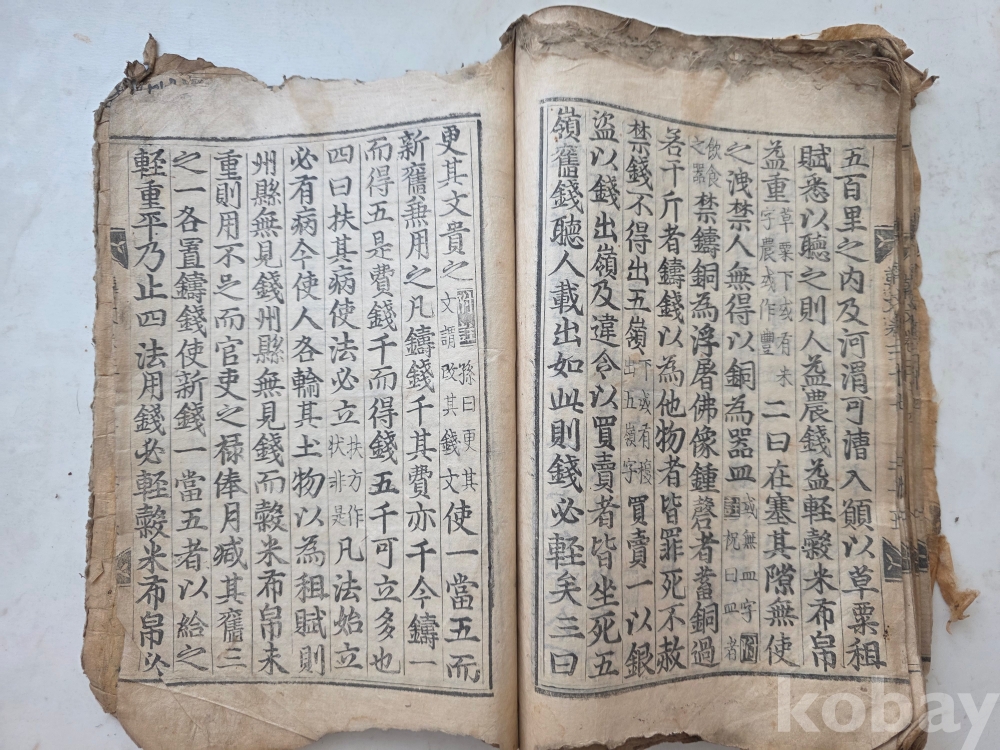 五百里之內及河渭可漕入願以草粟租
賦悉以聽之則人益農錢益輕穀米布帛
益重草粟下或有米字農或作豐二曰在塞其隙無使
之洩禁人無得以銅為器皿或無皿字祝曰皿者
飲食之器禁鑄銅為浮屠佛像鍾磬者蓄銅過
若干斤者鑄錢以為他物者皆罪死不赦
禁錢不得出五嶺下或有複出五嶺字買賣一以銀
盜以錢出嶺及違令以買賣者皆坐死五
嶺舊錢聽人載出如此則錢必輕矣三曰
更其文貴之孫曰更其文謂改其錢文使一當五而
新舊兼用之凡鑄錢千其費亦千今鑄一
而得五是費錢千而得錢五千可立多也
四曰扶其病使法必立扶方作狀非是凡法始立
必有病今使人各輪其土物以為租賦則
州縣無見錢州縣無見錢而穀米布帛未
重則用不足而官吏之祿俸月減其舊三
之一各置鑄錢使新錢一當五者以給之
輕重平乃止四法用錢必輕穀米布帛必
kobay